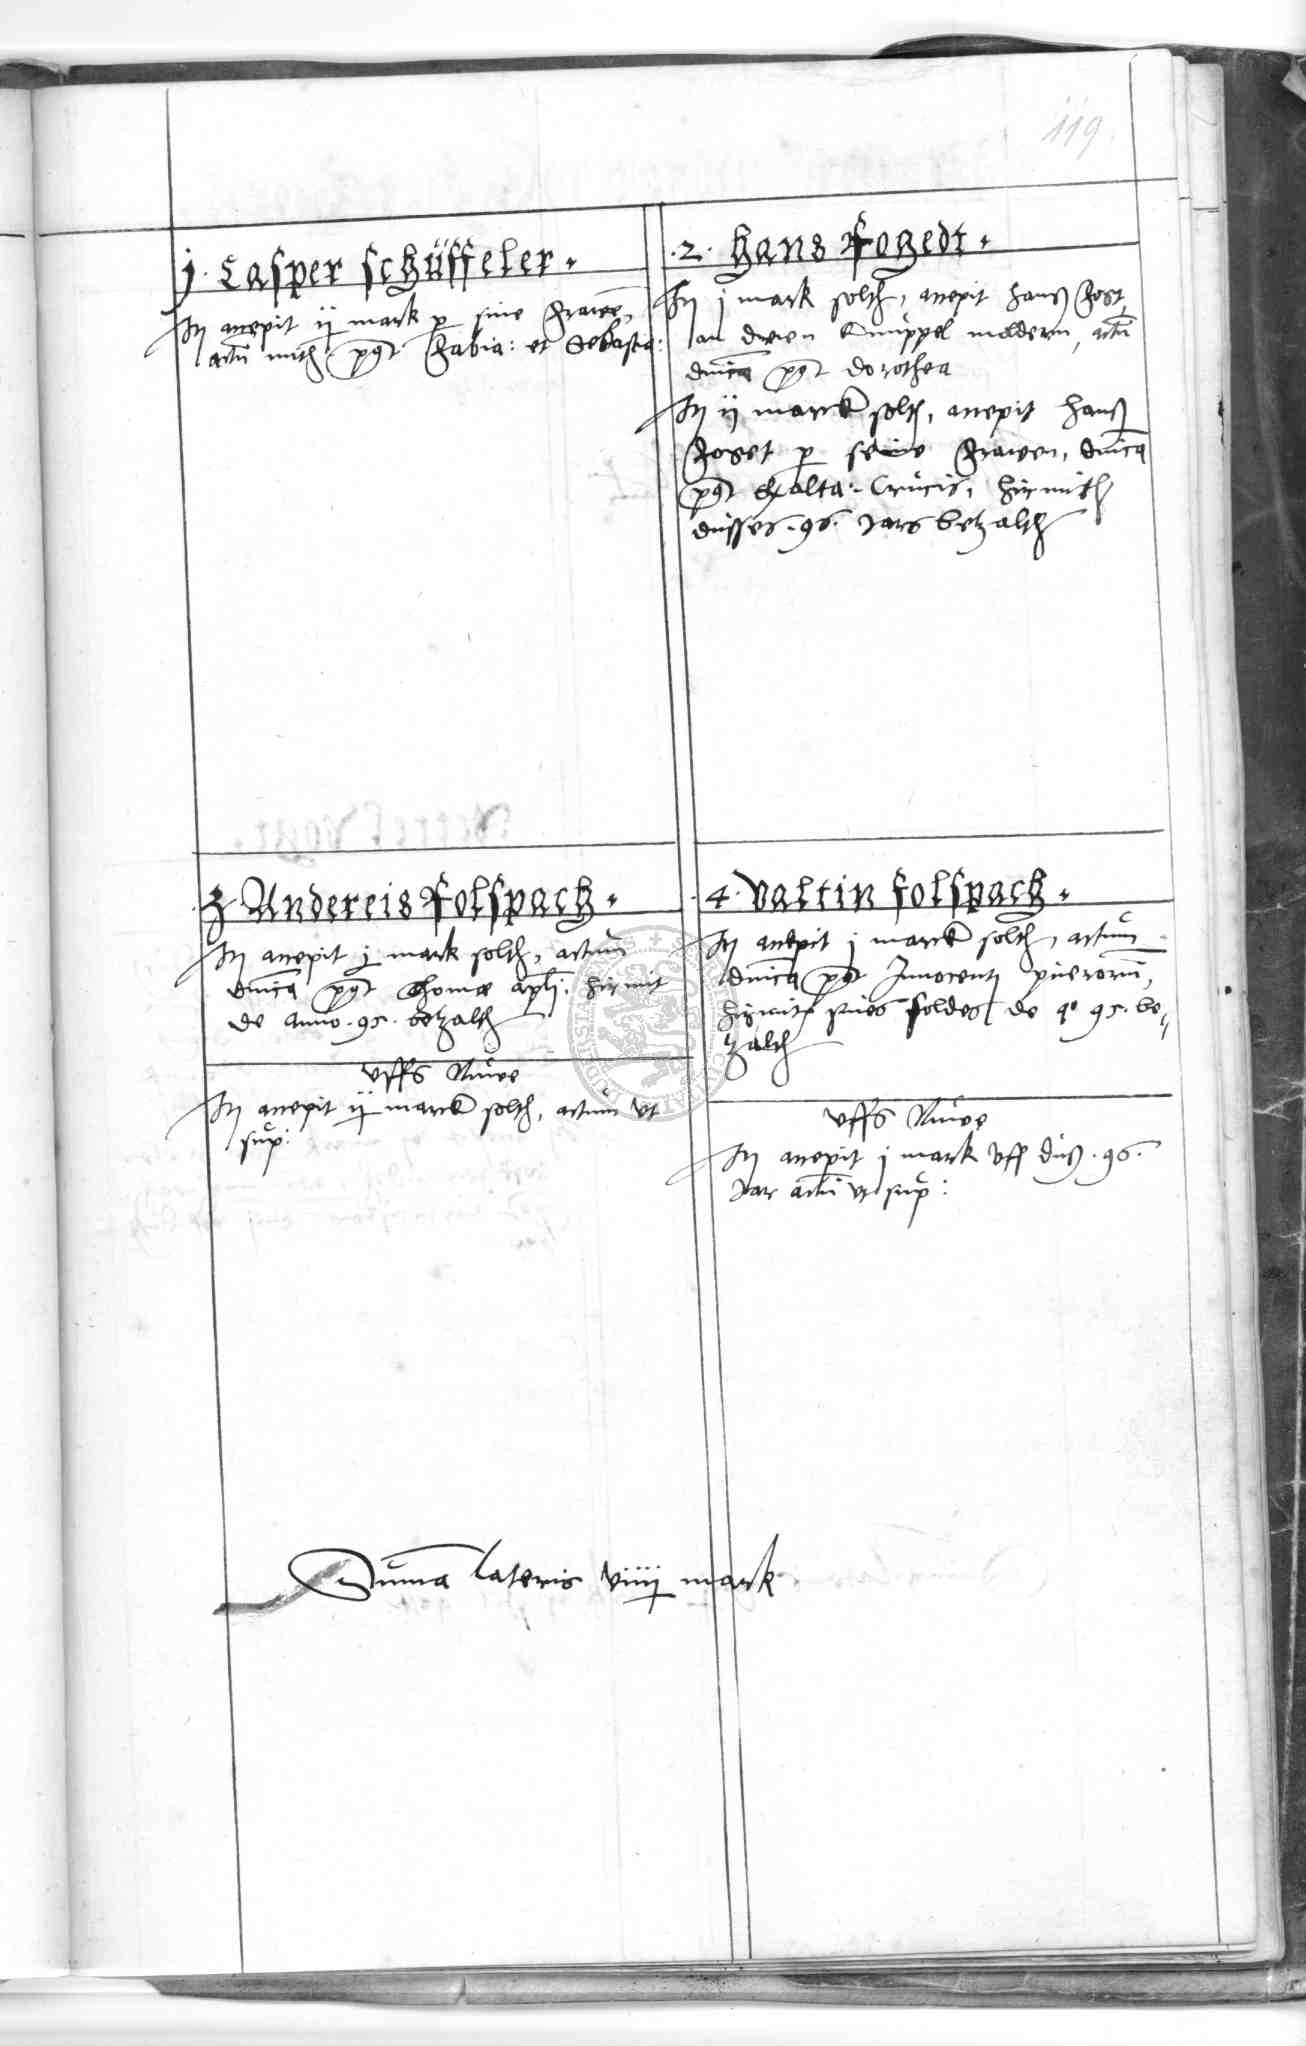 119
1. Casper schüffeler.
It accepit ij mark p sine Frawe,
actu mith post Fabia: et Sebastia:
.2. Hans Fogedt.
It j mark solth, accepit Hanß Fogt
an drien Knuppel meldern, actu
dnica post dorothea
It ij marck solth, accepit Hanß
Foget p seine Frawen, dnica
post Exalta: Crucis, hirmith
dusses .96. Jars betzalth
.3. Andereis Folspach.
It accepit j mark solth, actum
dnica post Thome apli: hirmit
de anno .95. betzalth
uffs Nuwe
It accepit ij marck solth, actum ut
sup:
.4. Valtin Folspach.
It accepit j marck solth, actum
dnica post Innocenti puerorum,
hirmit sines soldes de ao 95. be„
zalth
uffs Nuwe
It accepit j mark uff duß .96.
Jar actu ut sup:
Suma lateris viiij mark